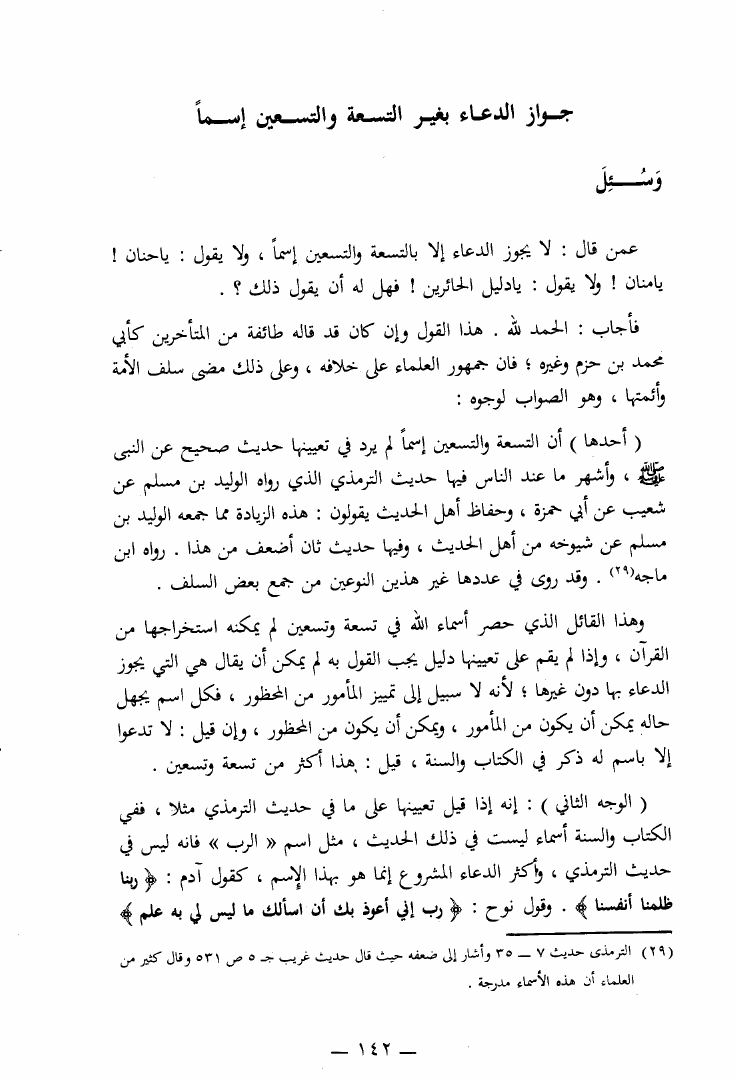 جواز الدعاء بغير التسعة والتسعين إسماً
وَسُئِلَ
عمن قال : لا يجوز الدعاء إلا بالتسعة والتسعين إسماً ، ولا يقول : ياحنان !
يامنان ! ولا يقول : يادليل الحائرين ! فهل له أن يقول ذلك ؟ .
فأجاب : الحمد لله . هذا القول وإن كان قد قاله طائفة من المتأخرين كأبي
محمد بن حزم وغيره ؛ فان جمهور العلماء على خلافه ، وعلى ذلك مضى سلف الأمة
وأئمتها ، وهو الصواب لوجوه :
( أحدها ) أن التسعة والتسعين إسماً لم يرد في تعيينها حديث صحيح عن النبى
ﷺ ، وأشهر ما عند الناس فيها حديث الترمذي الذي رواه الوليد بن مسلم عن
شعيب عن أبي حمزة ، وحفاظ أهل الحديث يقولون : هذه الزيادة مما جمعه الوليد بن
مسلم عن شيوخه من أهل الحديث ، وفيها حديث ثان أضعف من هذا . رواه ابن
ماجه(٢٩) . وقد روى في عددها غير هذين النوعين من جمع بعض السلف .
وهذا القائل الذي حصر أسماء الله في تسعة وتسعين لم يمكنه استخراجها من
القرآن ، وإذا لم يقم على تعيينها دليل يجب القول به لم يمكن أن يقال هي التي يجوز
الدعاء بها دون غيرها ؛ لأنه لا سبيل إلى تمييز المأمور من المحظور ، فكل اسم يجهل
حاله يمكن أن يكون من المأمور ، ويمكن أن يكون من المحظور ، وإن قيل : لا تدعوا
إلا باسم له ذكر في الكتاب والسنة ، قيل : هذا أكثر من تسعة وتسعين .
( الوجه الثاني ) : إنه إذا قيل تعيينها على ما في حديث الترمذي مثلا ، ففي
الكتاب والسنة أسماء ليست في ذلك الحديث ، مثل اسم « الرب » فانه ليس في
حديث الترمذي ، وأكثر الدعاء المشروع إنما هو بهذا الإسم ، كقول آدم : ﴿ ربنا
ظلمنا أنفسنا ﴾ . وقول نوح : ﴿ رب إني أعوذ بك أن اسألك ما ليس لي به علم ﴾
(٢٩) الترمذى حديث ٧ ـ ٣٥ وأشار إلى ضعفه حيث قال حديث غريب جـ ٥ ص ٥٣١ وقال كثير من
العلماء أن هذه الأسماء مدرجة .
ـ ١٤٢ ـ